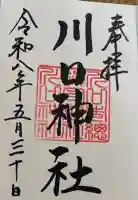 奉拝
川口神社
令和六年五月二十日